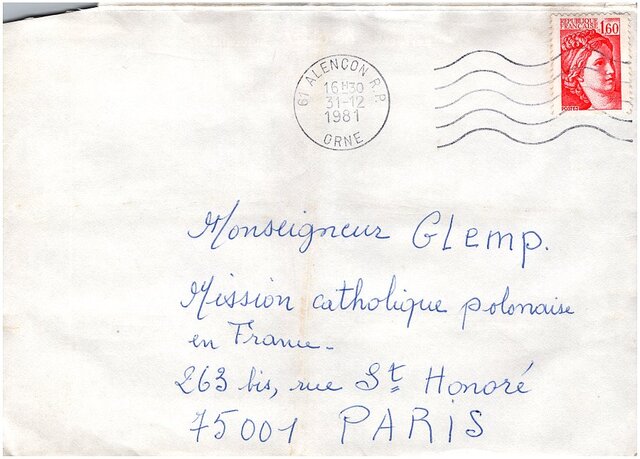 REPUBLIQUE
FRANÇAISE 1,60
POSTES
61 ALENCON R.P.
16H30
31-12
1981
ORNE
Monseigneur Glemp.
Mission catholique polonaise
en France.
263 bis, rue St Honoré
75001 PARIS